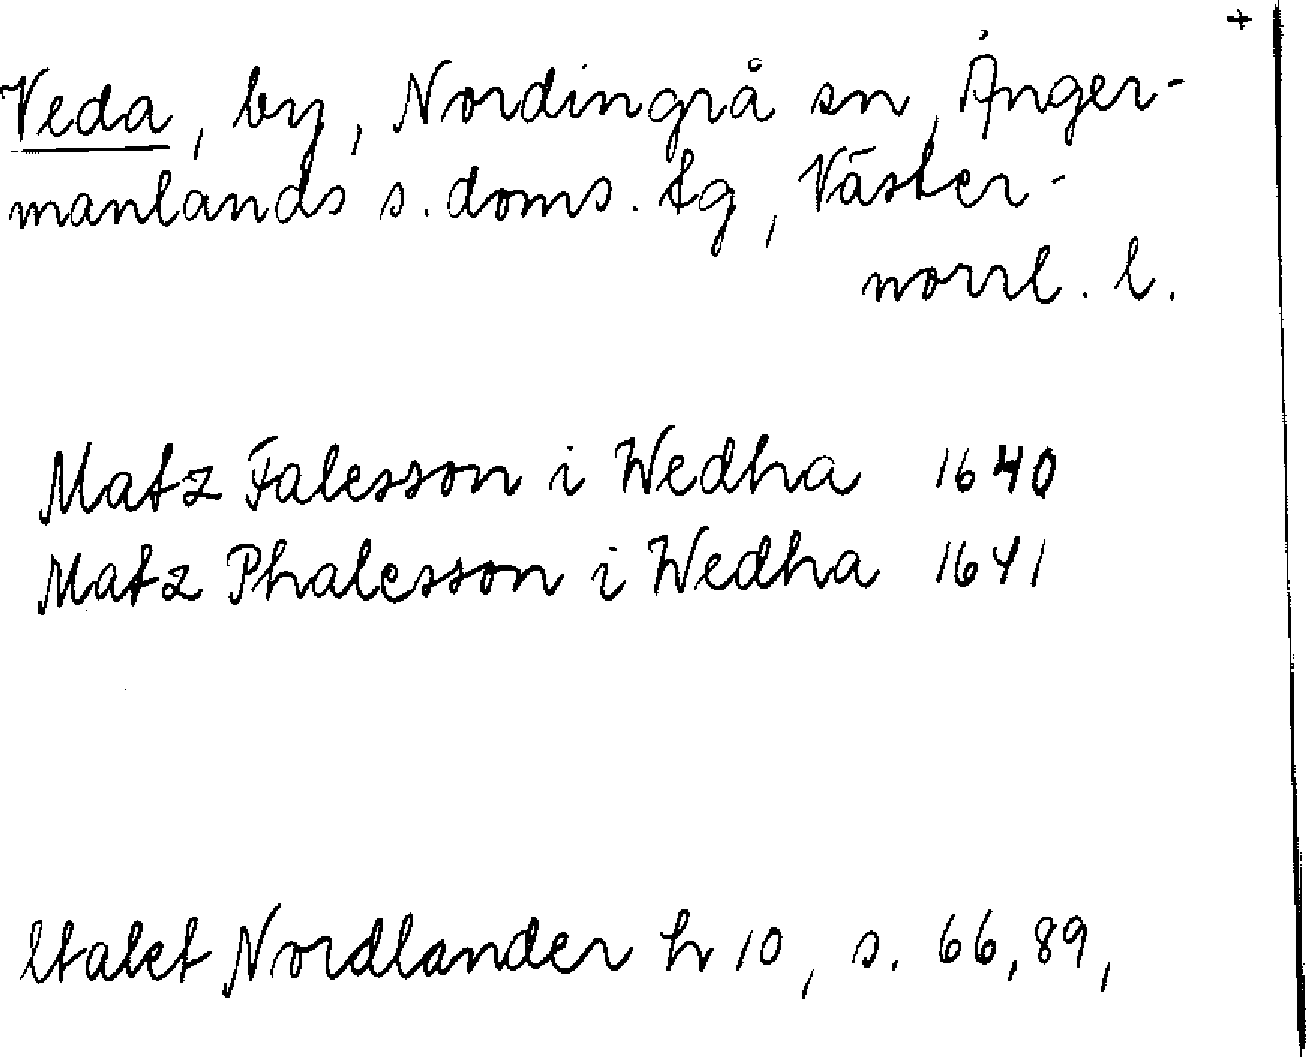 +
Veda, by, Nordingrå sn, Ånger-
manlands s. doms. tg, Väster-
norrl. l.
Matz Falesson i Wedha 1640
Matz Phalesson i Wedha 1641
Nordlander h 10, s. 66, 89,